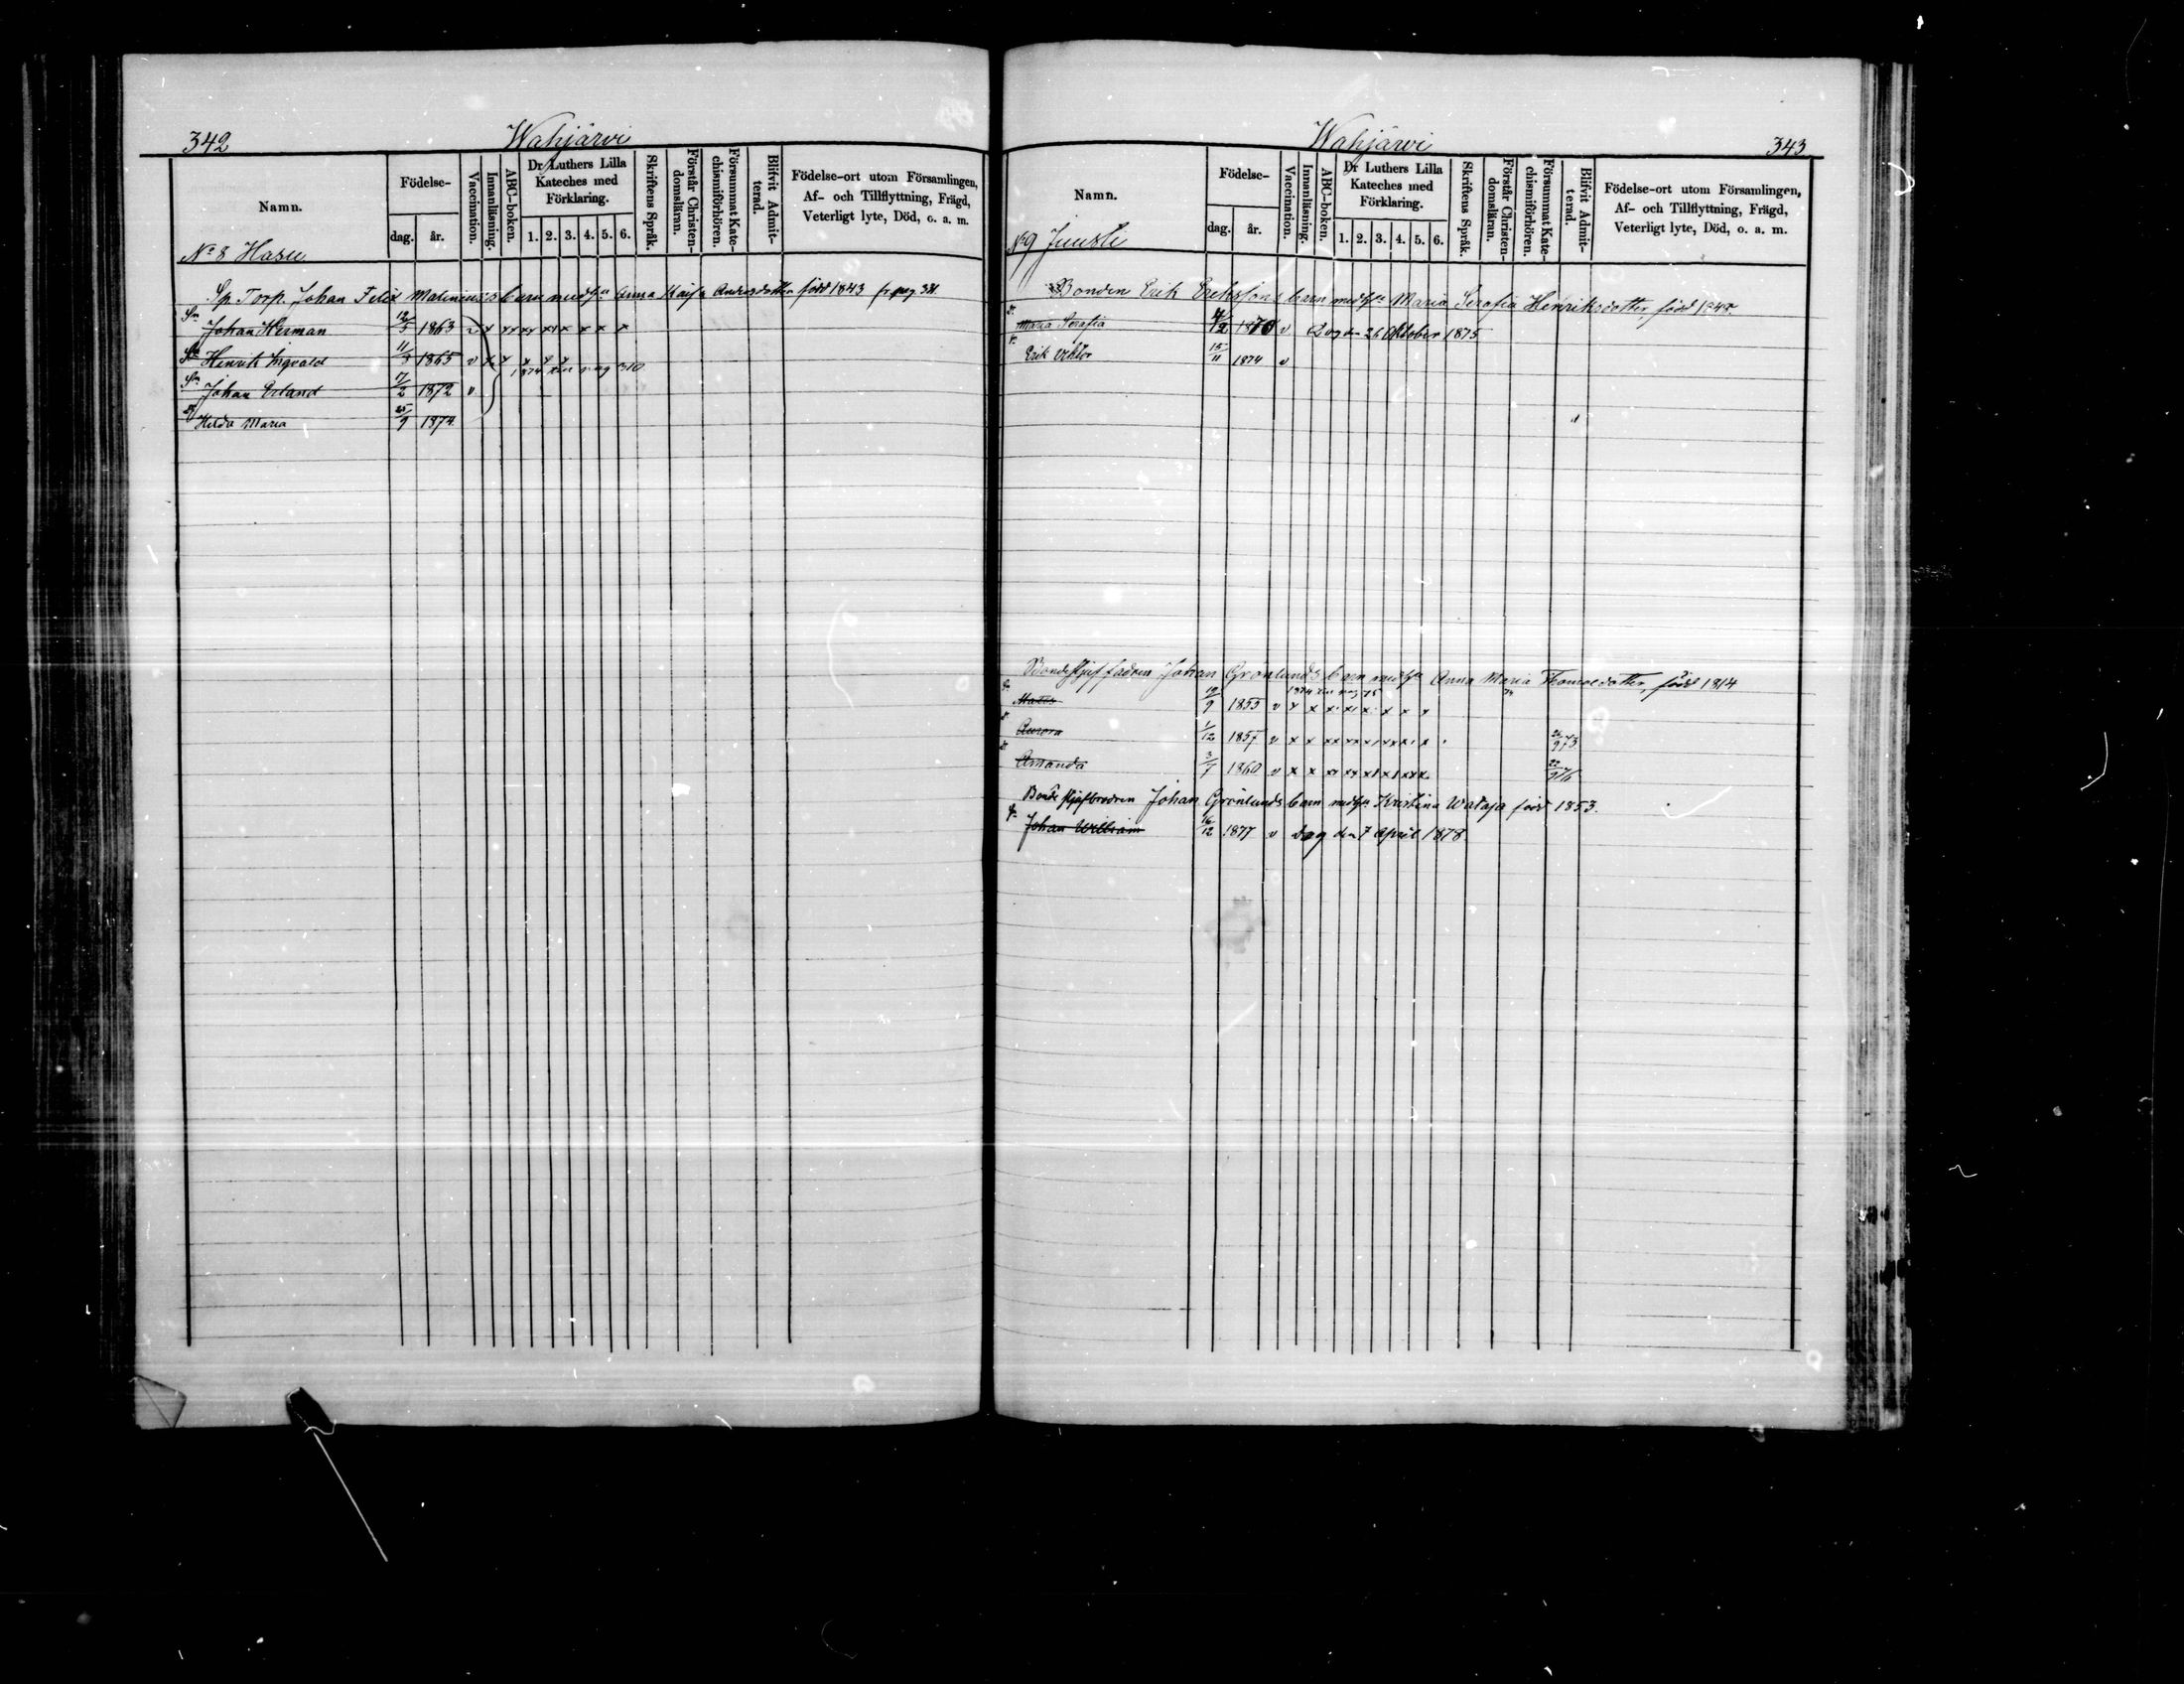 342
Wahjärvi
Namn.
Födelse-
dag.
år.
Vaccination.
Innanläsning.
ABC-boken.
Dr Luthers Lilla
Kateches med
Förklaring.
1. 2. 3. 4. 5. 6.
Skriftens Språk.
Förstår Christen-
domsläran.
Försummat Kate-
chismiförhören.
Blifvit Admit-
terad.
Födelse-ort utom Församlingen,
Af- och Tillflyttning, Frägd,
Veterligt lyte, Död, o. a. m.
No 8 Hasu
Sp. Torp. Johan Felix Malenius's barn med hu Anna Kaisa Andersdotter född 1843 fr pag 341.
Sn Johan Herman 12/5 1863 v x xx xx xx x x x x
Sn Henrik Ingvald 11/8 1865 v x x x x x
1874 pag 310
Sn Johan Erland 17/2 1872 v
D Hilda Maria 25/9 1874
Wahjärvi
343
Namn.
Födelse-
dag.
år.
Vaccination.
Innanläsning.
ABC-boken.
Dr Luthers Lilla
Kateches med
Förklaring.
1. 2. 3. 4. 5. 6.
Skriftens Språk.
Förstår Christen-
domsläran.
Försummat Kate-
chismiförhören.
Blifvit Admit-
terad.
Födelse-ort utom Församlingen,
Af- och Tillflyttning, Frägd,
Veterligt lyte, Död, o. a. m.
No 9 Juusti
Bonden Erik Erikssons barn med hu Maria Serafia Henriksdotter, född
D. Maria Serafia 4/2 1870 v Dog den 26 Oktober 1875
S. Erik Viktor 15/11 1874 v
Johan Grönlunds barn med hu Anna Maria Thomasdotter, född 1814
1874 pag 75
S. Matts 19/9 1855 v x x x x x x x x
D. Aurora 1/12 1857 v x x xx xx x x x x 973
D. Amanda 3/7 1860 v x x xx xx x x x xx 22/9 76
Johan Grönlunds barn med hu Kristina Wataja född 1853.
S. Johan William 16/12 1877 v Dog den 7 April 1878